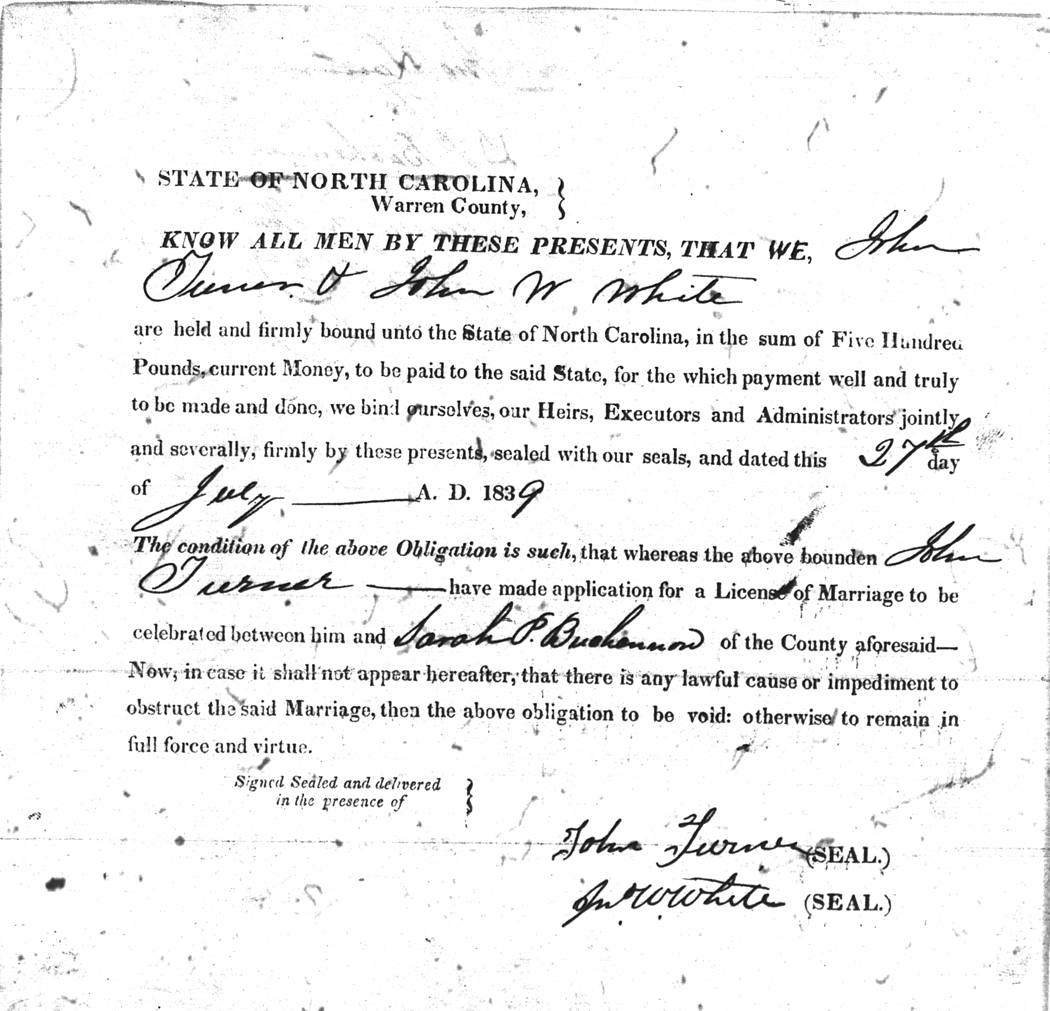 STATE OF NORTH CAROLINA,
Warren County,
KNOW ALL MEN BY THESE PRESENTS, THAT WE, John
Turner & John W White
are held and firmly bound unto the State of North Carolina, in the sum of Five Hundred
Pounds, current Money, to be paid to the said State, for the which payment well and truly
to be made and done, we bind ourselves, our Heirs, Executors and Administrators jointly
and severally, firmly by these presents, sealed with our seals, and dated this 27th day
of July A. D. 1839
The condition of the above Obligation is such, that whereas the above bounden John
Turner have made application for a License of Marriage to be
celebrated between him and Sarah P. Buchannon of the County aforesaid—
Now, in case it shall not appear hereafter, that there is any lawful cause or impediment to
obstruct the said Marriage, then the above obligation to be void: otherwise to remain in
full force and virtue.
Signed Sealed and delivered
in the presence of
John Turner (SEAL.)
Jno W White (SEAL.)